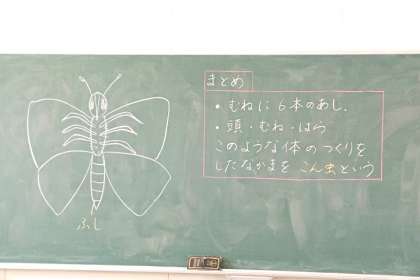 まとめ
・むねに6本のあし.
・頭・むね・はら
このような体のつくりを
したなかまを こん虫という
ふし